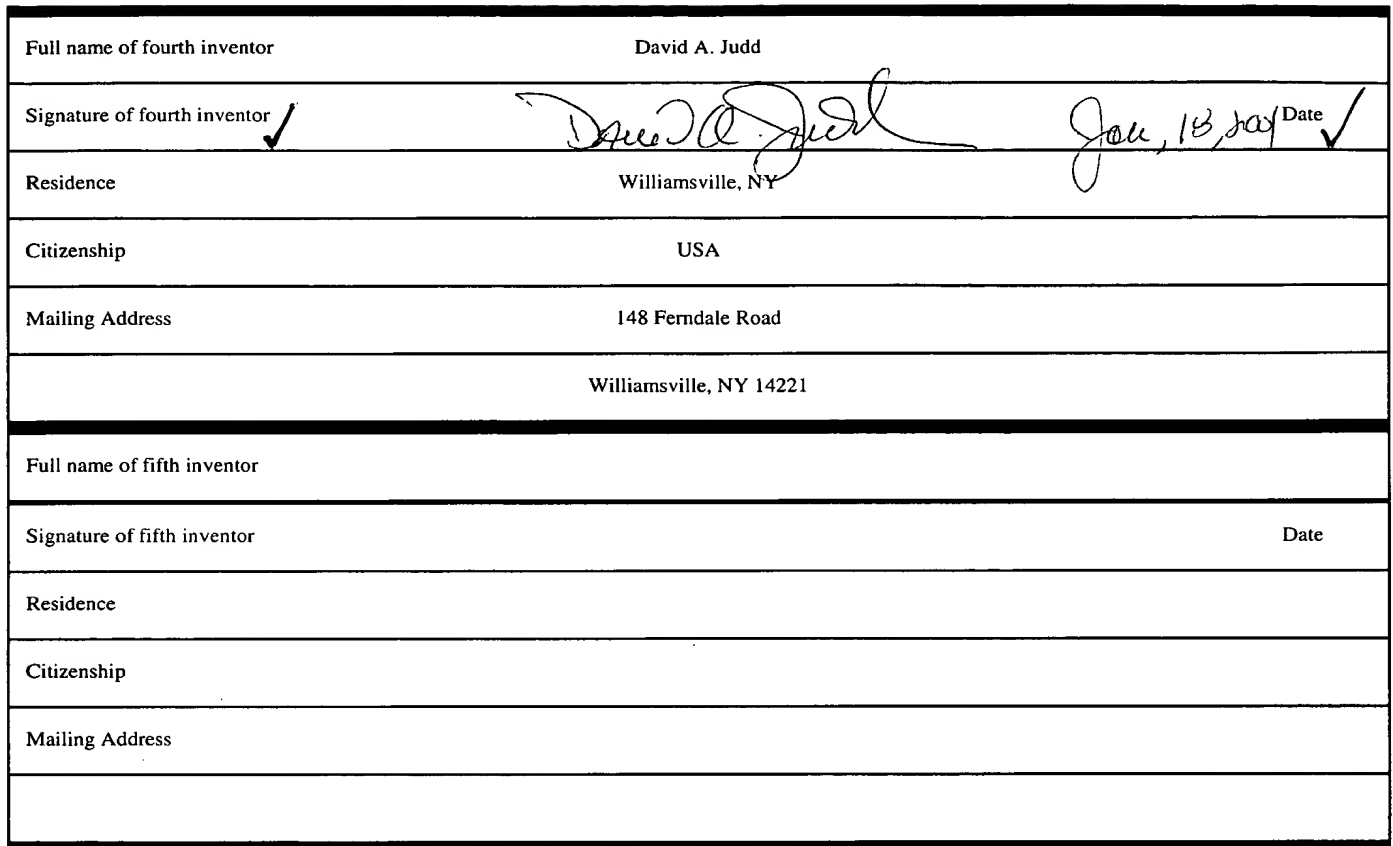 Full name of fourth inventor David A. Judd
Signature of fourth inventor ✓ David A. Judd Jan, 18, 2001 Date ✓
Residence Williamsville, NY
Citizenship USA
Mailing Address 148 Ferndale Road
Williamsville, NY 14221
Full name of fifth inventor
Signature of fifth inventor Date
Residence
Citizenship
Mailing Address